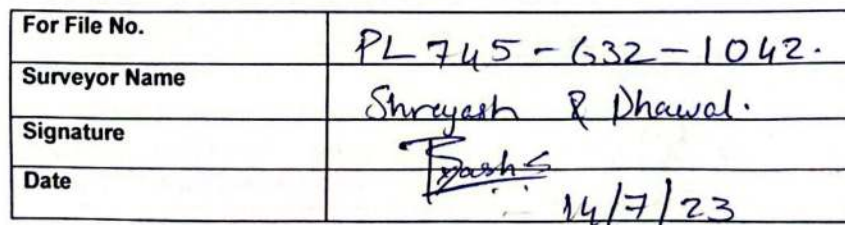 For File No. PL745-632-1042.
Surveyor Name Shreyash & Dhawal.
Signature
Date 14/7/23